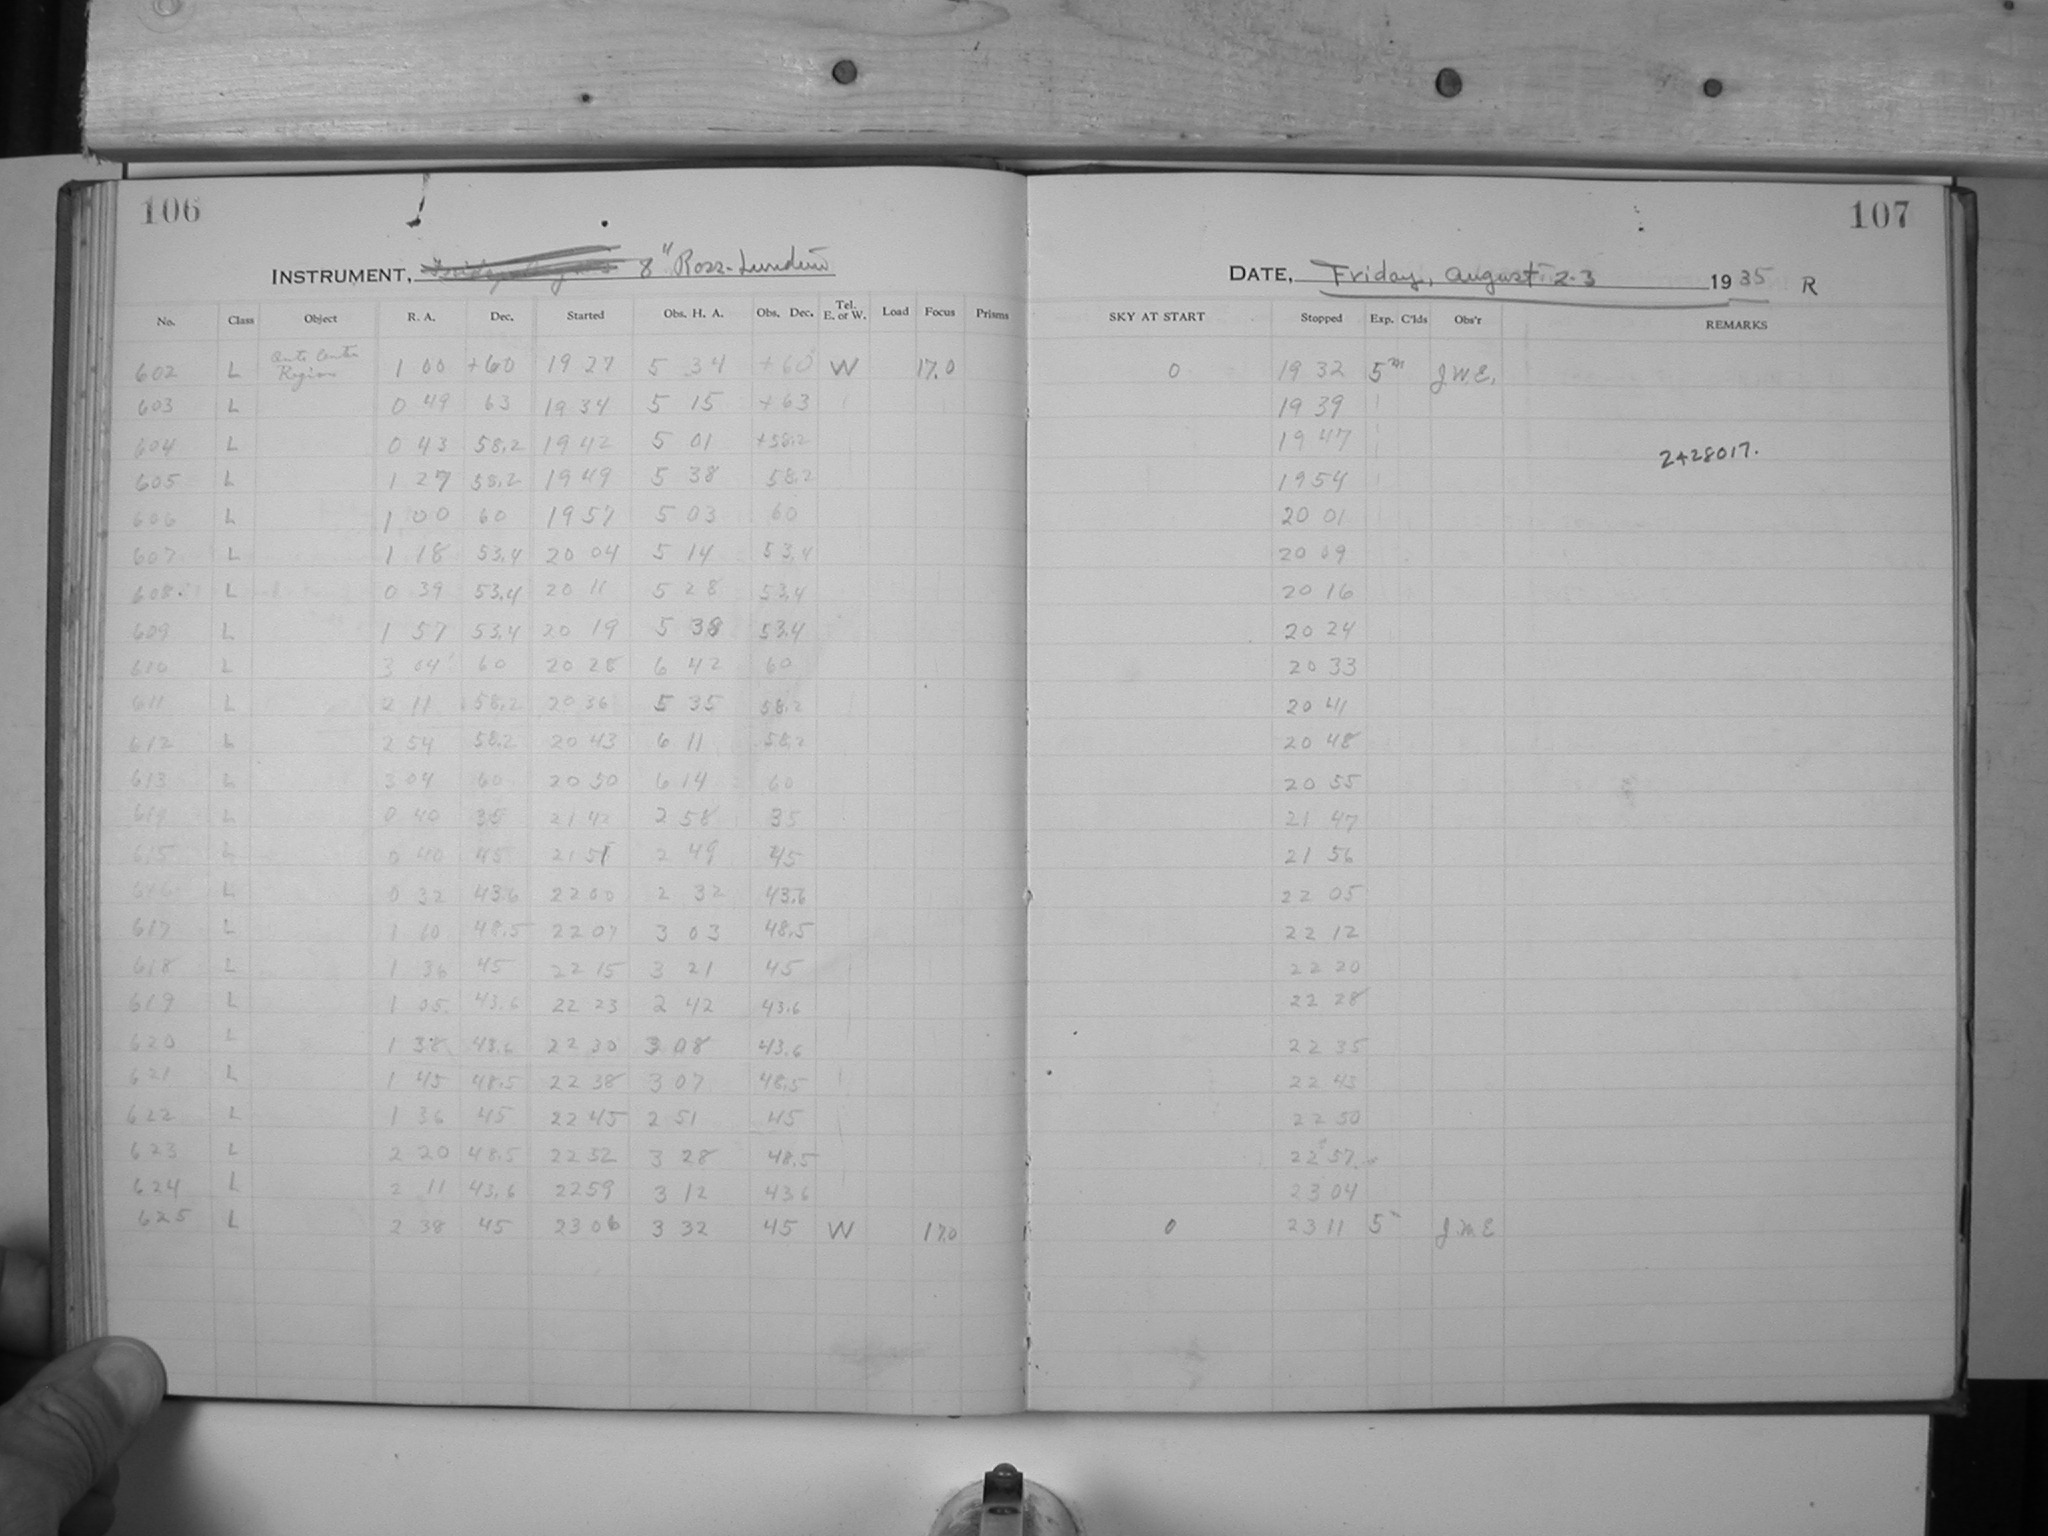 106
INSTRUMENT, 8" Ross-Lundin
No. Class Object R. A. Dec. Started Obs. H. A. Obs. Dec. Tel. E. or W. Load Focus Prisms
602 L Anti Center Region 1 00 +60 19 27 5 34 +60 W 17.0
603 L 0 49 63 19 34 5 15 +63
604 L 0 43 58.2 19 42 5 01 +58.2
605 L 1 27 58.2 19 49 5 38 58.2
606 L 1 00 60 19 57 5 03 60
607 L 1 18 53.4 20 04 5 14 53.4
608 L 0 39 53.4 20 11 5 28 53.4
609 L 1 57 53.4 20 19 5 38 53.4
610 L 3 04 60 20 28 6 42 60
611 L 2 11 58.2 20 36 5 35 58.2
612 L 2 54 58.2 20 43 6 11 58.2
613 L 3 04 60 20 50 6 14 60
614 L 0 40 35 21 42 2 58 35
615 L 0 40 45 21 51 2 49 45
616 L 0 32 43.6 22 00 2 32 43.6
617 L 1 10 48.5 22 07 3 03 48.5
618 L 1 36 45 22 15 3 21 45
619 L 1 05 43.6 22 23 2 42 43.6
620 L 1 38 43.6 22 30 3 08 43.6
621 L 1 45 48.5 22 38 3 07 48.5
622 L 1 36 45 22 45 2 51 45
623 L 2 20 48.5 22 52 3 28 48.5
624 L 2 11 43.6 22 59 3 12 43.6
625 L 2 38 45 23 06 3 32 45 W 17.0
107
DATE, Friday, August 2-3 1935 R
SKY AT START Stopped Exp. C'lds Obs'r REMARKS
0 19 32 5m J.W.E.
19 39
19 47
2428017.
19 54
20 01
20 09
20 16
20 24
20 33
20 41
20 48
20 55
21 47
21 56
22 05
22 12
22 20
22 28
22 35
22 43
22 50
22 57
23 04
0 23 11 5m J.W.E